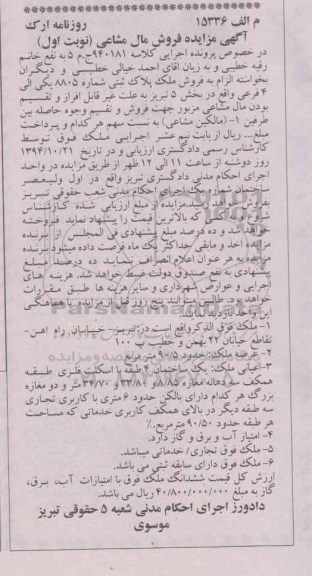 م الف ۱۵۳۳۶ روزنامه ارک
آگهی مزایده فروش مال مشاعی (نوبت اول)
در خصوص پرونده اجرایی کلاسه ۹۴۰۱۸۱ج.م ۵ به نفع خانم
رقیه خطیبی و به زیان اقای احمد خیالی خطیبی و دیگران
بخواسته الزام به فروش ملک پلاک ثبتی شماره ۸۸۰۵ یکی الی
۴ فرعی واقع در بخش ۵ تبریز به علت غیر قابل افراز و تقسیم
بودن مال مشاعی مزبور جهت فروش و تقسیم وجوه حاصله بین
طرفین ۱- (مالکین مشاعی) به نسبت سهم هر کدام و پرداخت
مبلغ... ریال از بابت نیم عشر اجرایی ملک فوق توسط
کارشناس رسمی دادگستری ارزیابی و در تاریخ ۱۳۹۴/۱۰/۲۱
روز دوشنبه از ساعت ۱۱ الی ۱۲ ظهر از طریق مزایده در واحد
اجرای احکام مدنی دادگستری تبریز واقع در اول ولیعصر
ساختمان شماره یک اجرای احکام مدنی شعب حقوقی تبریز
بفروش خواهد رسید.مزایده از مبلغ ارزیابی شده کارشناس
شروع و به کسانی که بالاترین قیمت را پیشنهاد نماید فروخته
خواهد شد و ده درصد مبلغ پیشنهادی فی المجلس از برنده
مزایده اخذ و مابقی حداکثر یک ماه فرصت داده میشود برنده
مزایده به هر عنوان اعلام انصراف نماید ده درصد مبلغ
پیشنهادی به نفع صندوق دولت ضبط خواهد شد. هزینه های
اجرایی و عوارض شهرداری و سایر هزینه ها طبق مقررات
خواهد بود. طالبین میتوانند پنج روز قبل از مزایده با هماهنگی
این واحد بازدید نمایند.
۱- ملک فوق الذکر واقع است در تبریز- خیابان راه اهن-
تقاطع خیابان ۲۲ بهمن و خطیب پ ۱۰۰
۲- عرصه ملک: حدود ۹۰/۵ متر مربع
۳-اعیانی ملک: یک ساختمان ۴ طبقه با اسکلت فلزی طبقه
همکف سه دهانه مغازه ۸/۸۵ و ۳۳/۸۱ و ۳۴/۷۰ متر و دو مغازه
بزرگ هر کدام دارای بالکن حدود ۶ متری با کاربری تجاری
سه طبقه دیگر در بالای همکف کاربری خدماتی که مساحت
هر طبقه حدود ۹۰/۵۰ مترمربع.٪
۴- امتیاز آب و برق و گاز دارد.
۵- ملک فوق تجاری/ خدماتی میباشد.
۶- ملک فوق دارای سابقه ثبتی می باشد.
ارزش کل قیمت ششدانگ ملک فوق با امتیازات آب، برق،
گاز به مبلغ ۴۰/۸۰۰/۰۰۰/۰۰۰ ریال می باشد.
دادورز اجرای احکام مدنی شعبه ۵ حقوقی تبریز
موسوی